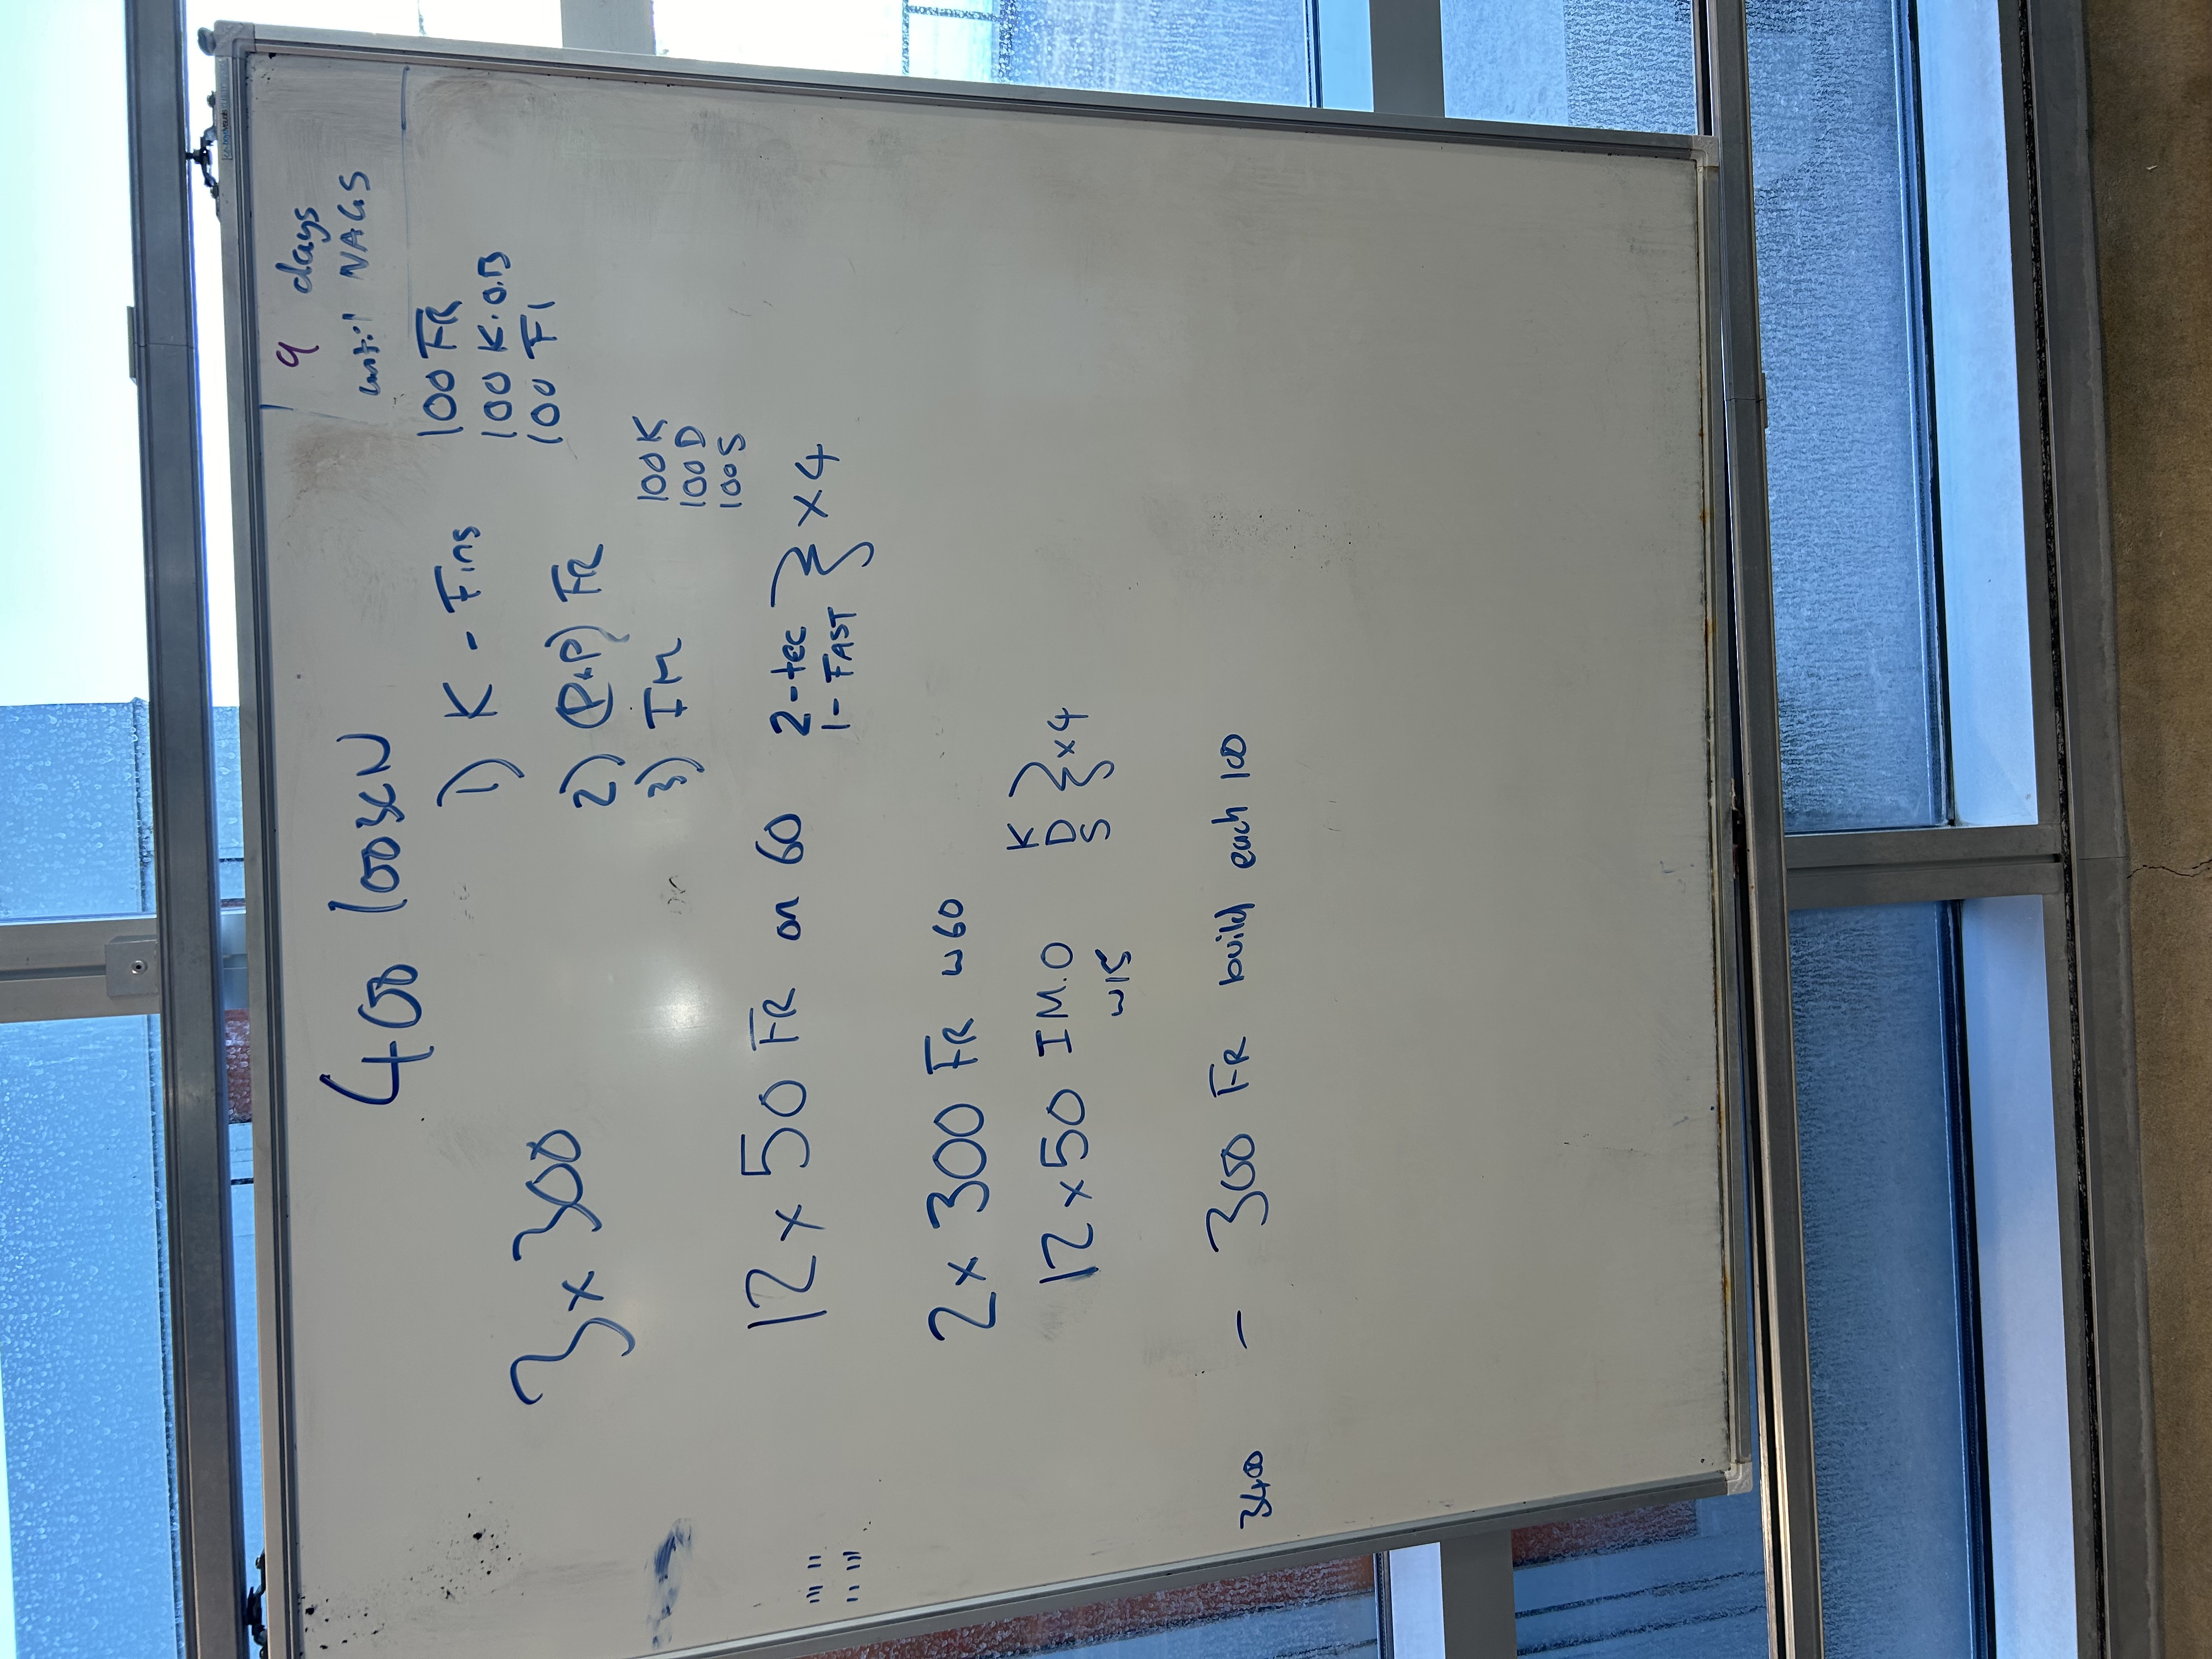 9 days
until NAGS
400 loosen
3 x 300
1) K - Fins
100 FR
100 K.O.B
100 F1
2) (P+P) FR
3) IM
100 K
100 D
100 S
12 x 50 FR on 60 2-tec } x 4
1-FAST
2 x 300 FR w60
12 x 50 IM.O
w15
K
D } x4
S
3400 - 300 FR build each 100